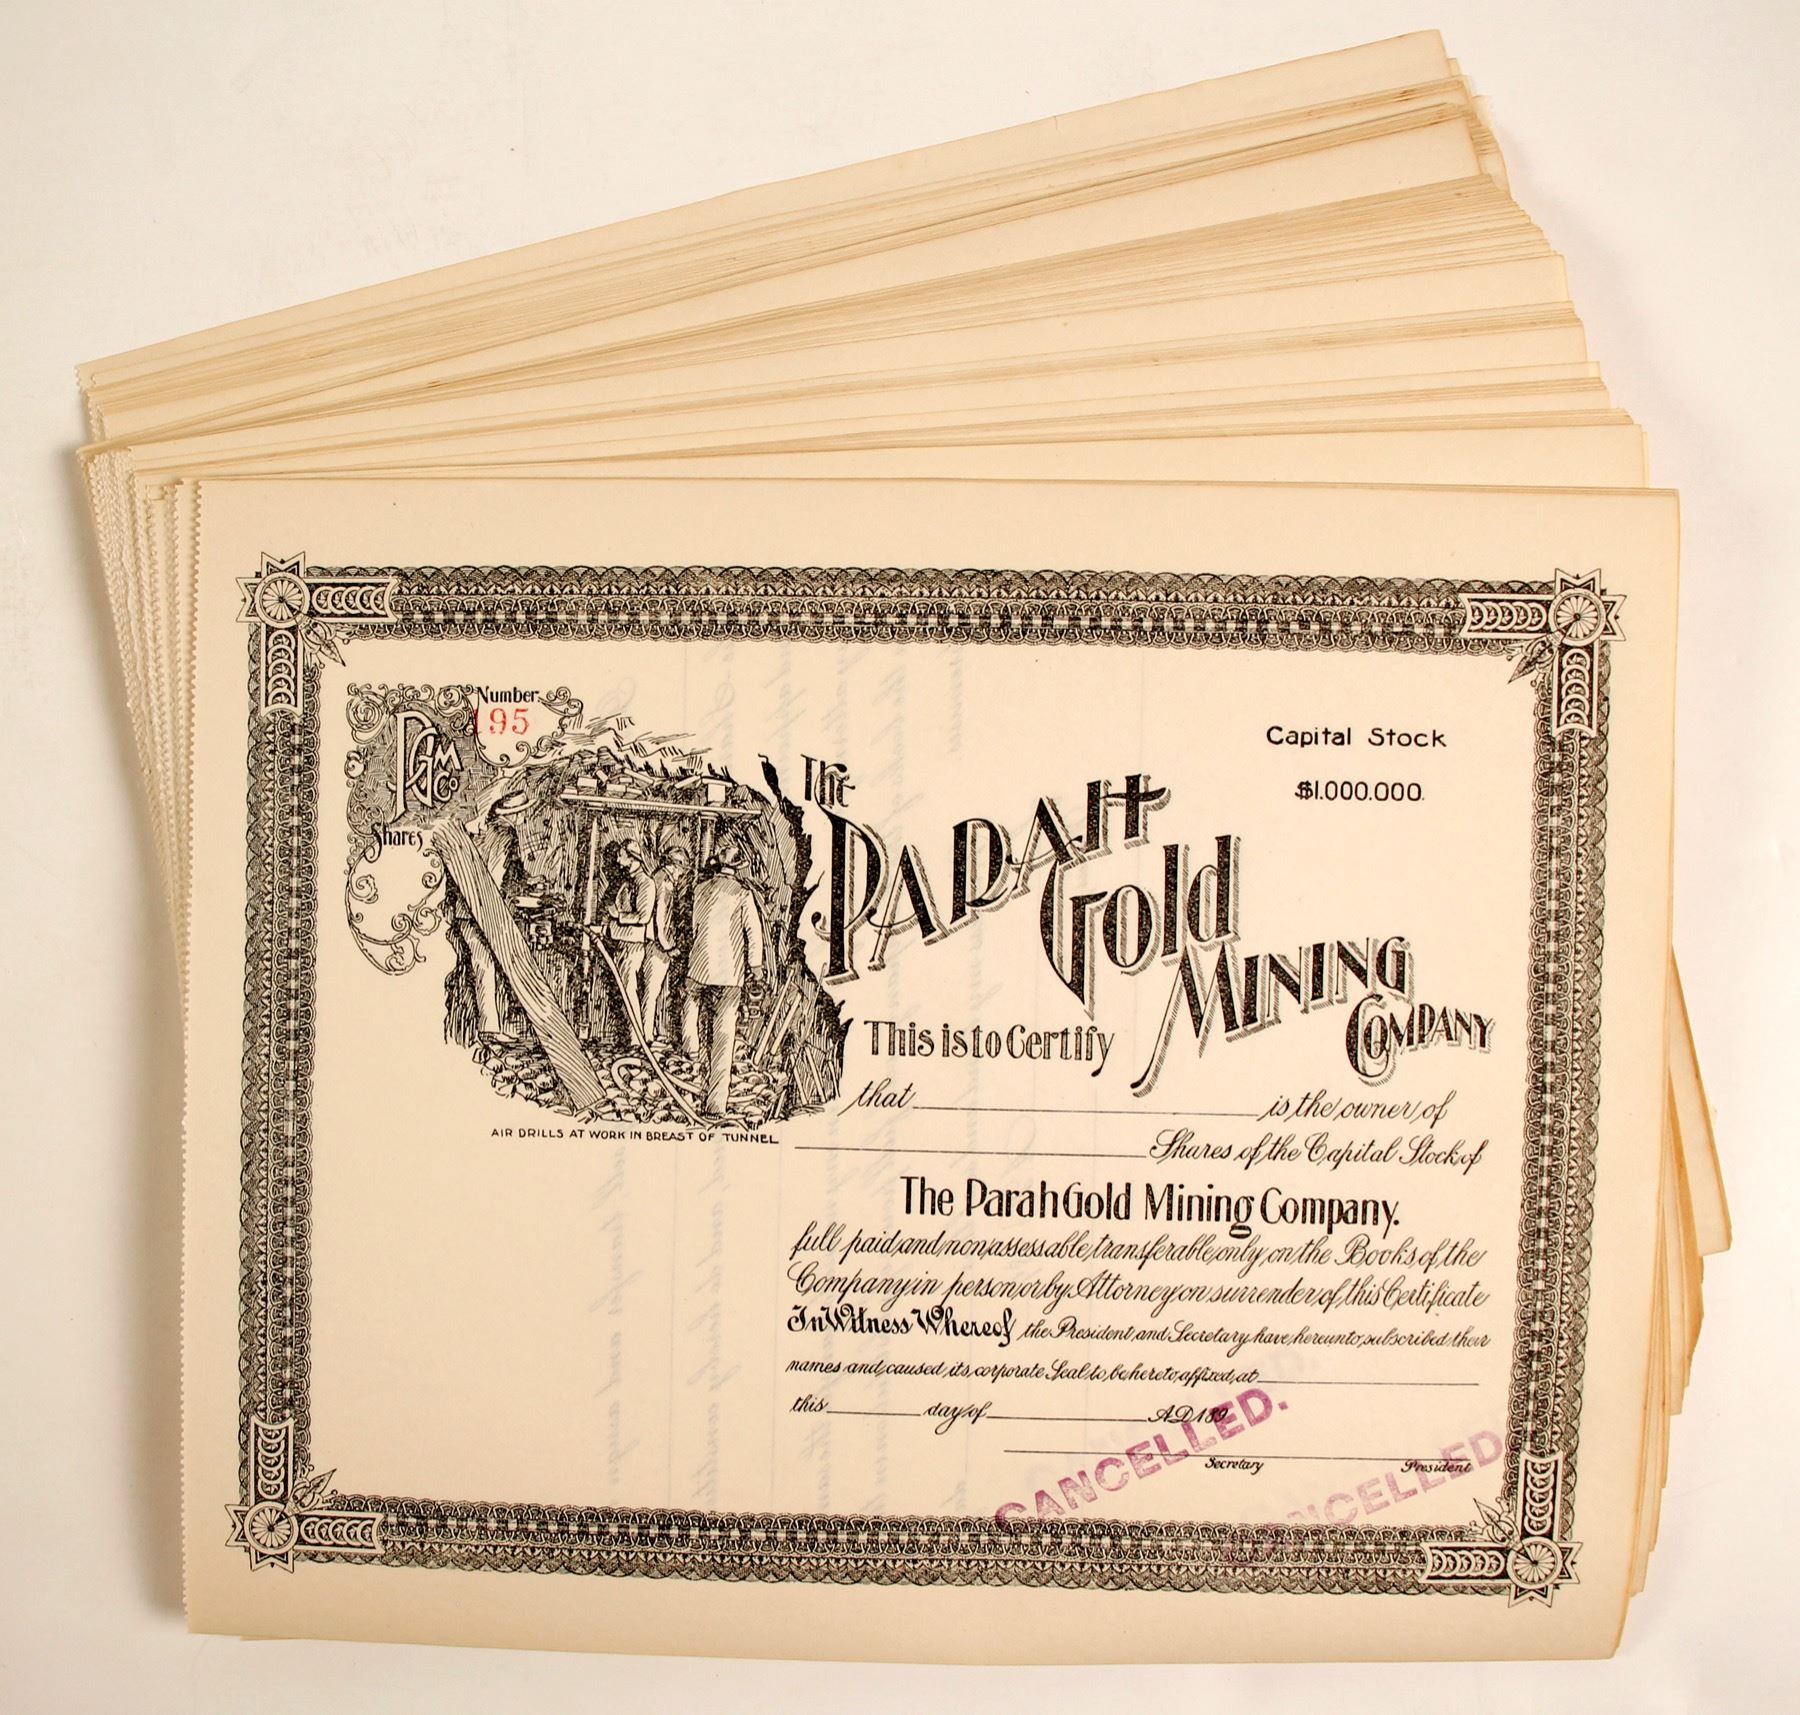 Number
195
PGM Co
Shares
Capital Stock
$1.000.000.
The
PARAH
Gold
MINING
COMPANY
This is to Certify
that is the owner of
Shares of the Capital Stock of
The Parah Gold Mining Company.
full paid and non assessable, transferable only on the Books of the
Company in person or by Attorney on surrender of this Certificate
In Witness Whereof the President and Secretary have hereunto subscribed their
names and caused its corporate Seal to be hereto affixed at
this day of A.D. 189
Secretary President
CANCELLED.
CANCELLED
AIR DRILLS AT WORK IN BREAST OF TUNNEL